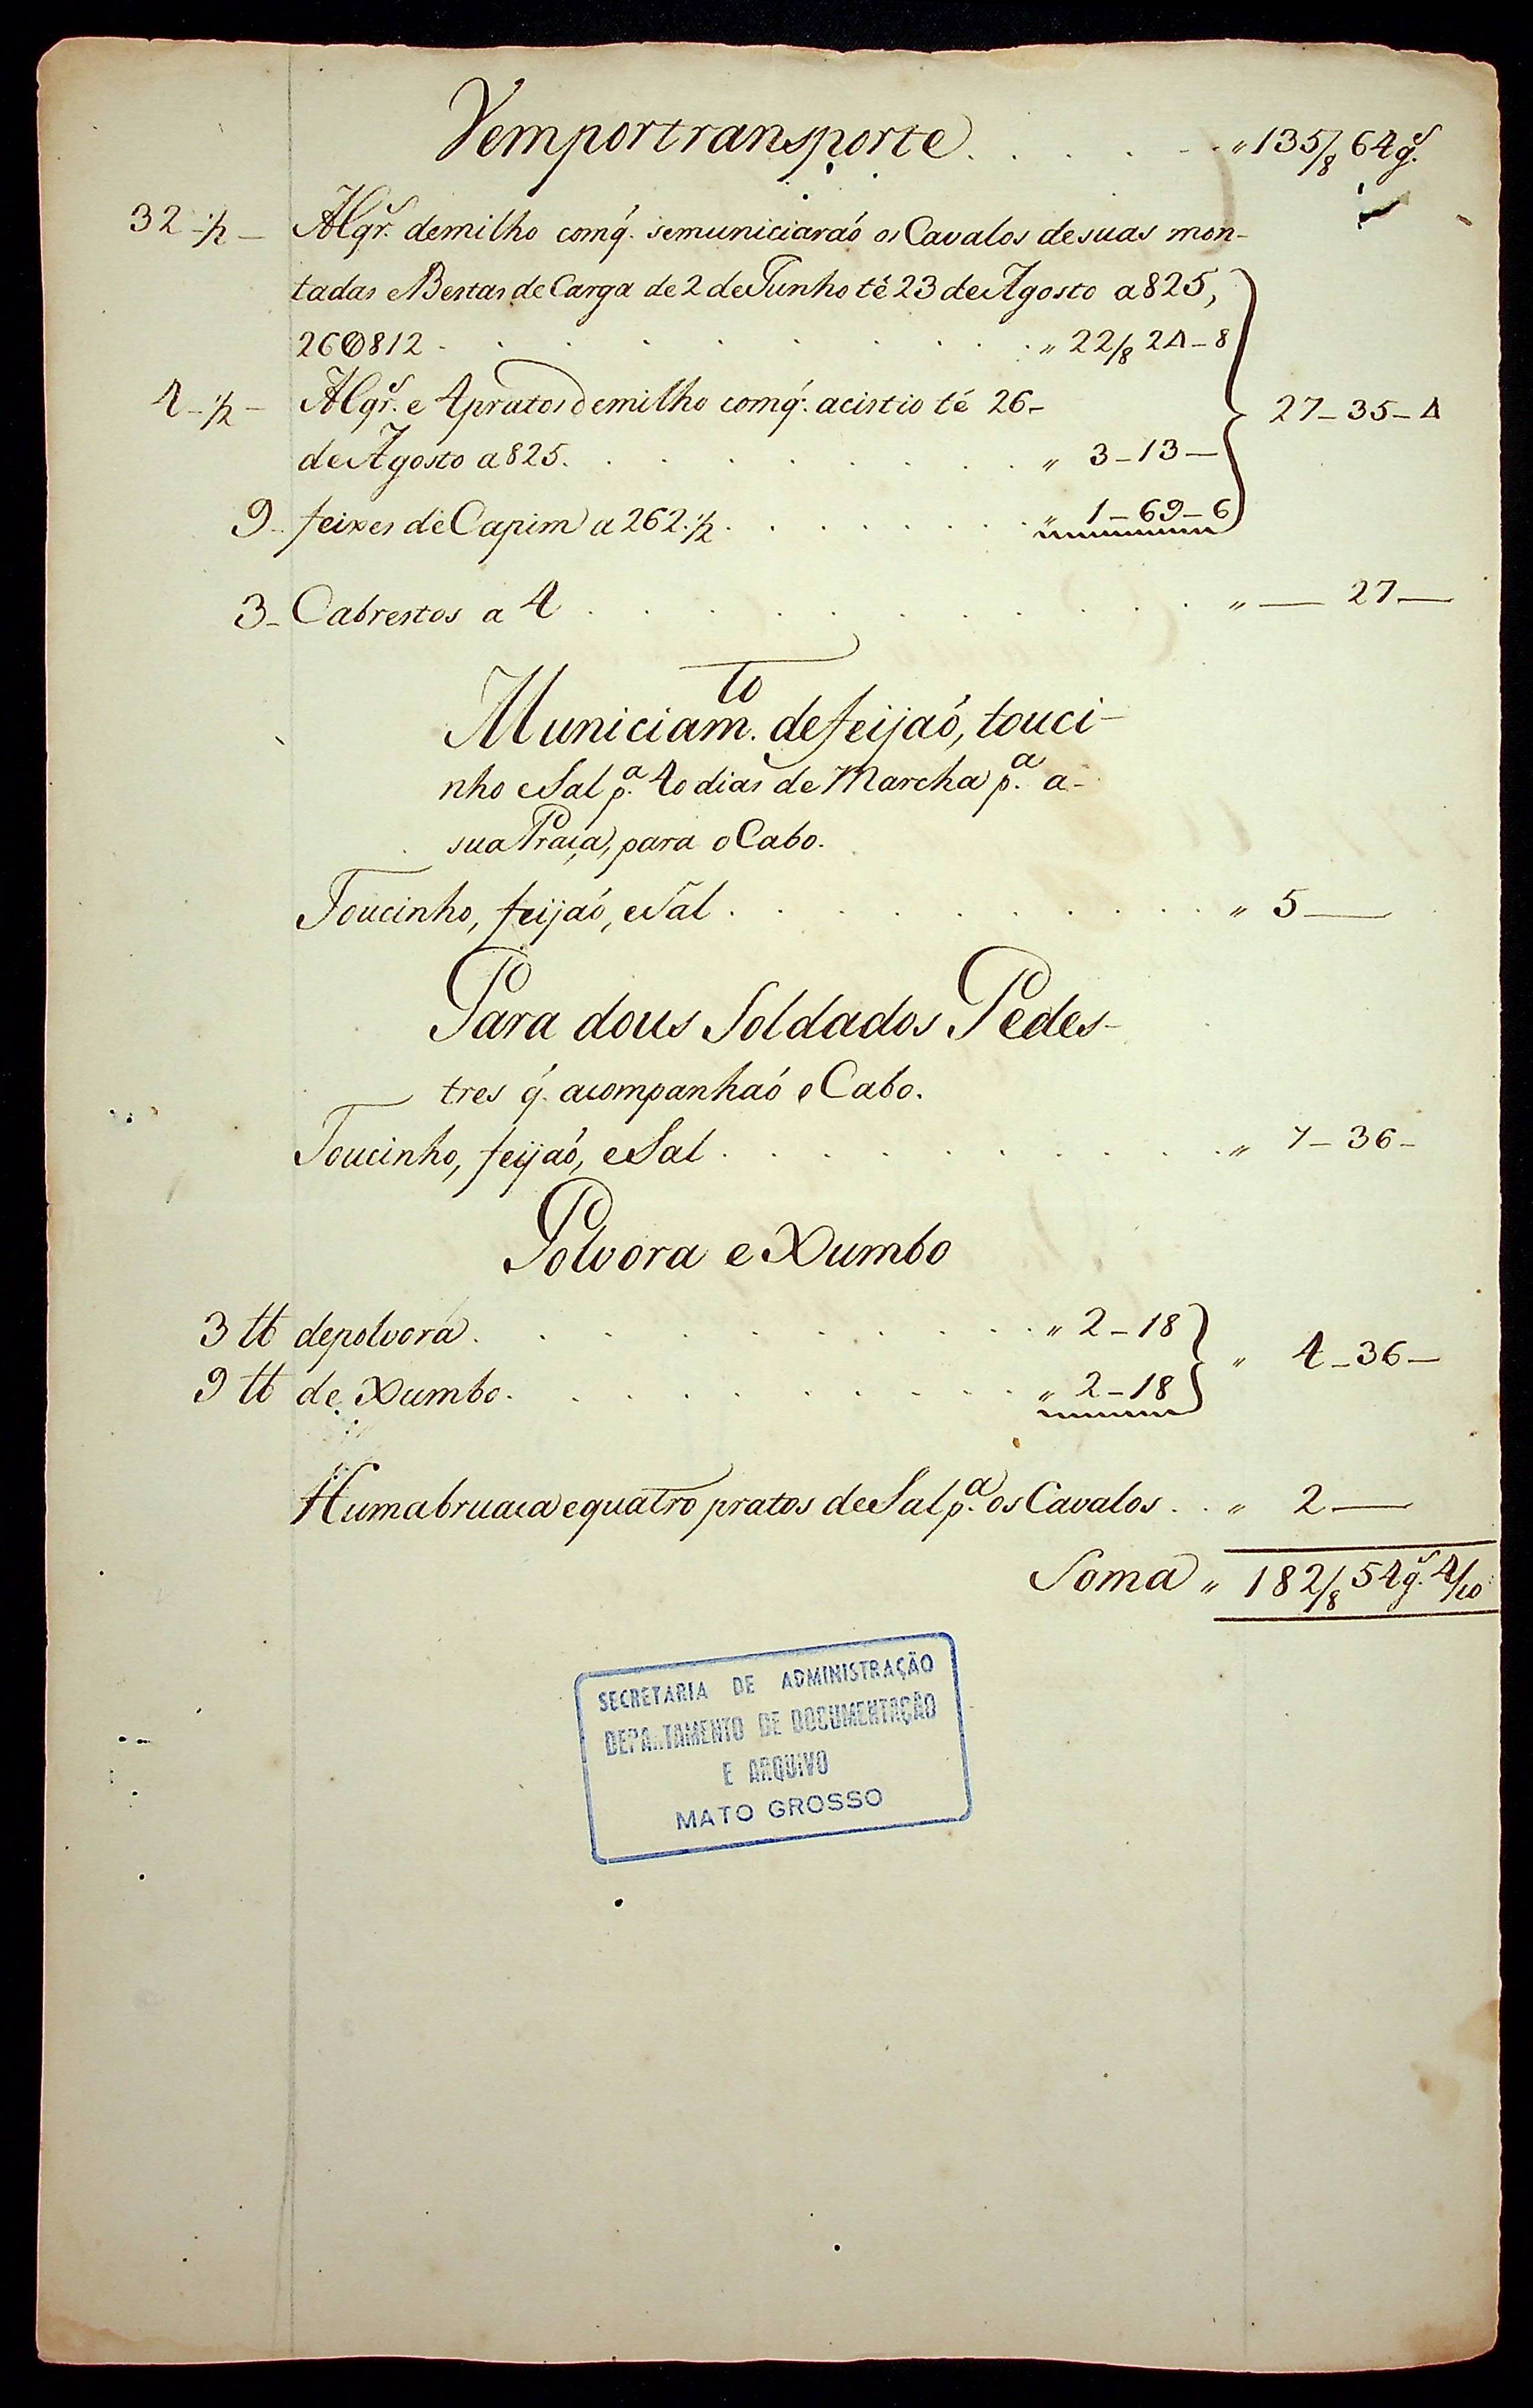 Vemportransporte . . . . . " 135/8 64 g.s
32 - 1/2 - Alqr.s demilho comq̃. semuniciaraó os Cavalos desuas mon-
tadas e Bestas de Carga de 2 de Junho té 23 de Agosto a 825,
26@812 . . . . . . . . . . " 22/8 24 - 8
4 - 1/2 - Alqr.s e 4 pratos demilho comq̃. acistio té 26 -
de Agosto a 825 . . . . . . . . " 3 - 13 - 27 - 35 - 4
9 - feixes de Capim a 262 1/2 . . . . . . " 1 - 69 - 6
3 - Cabrestos a 4 . . . . . . . . . " — 27 —
Municiam.to de feijaó, touci-
nho e Sal p.a 40 dias de Marcha p.a a -
sua Praça, para o Cabo.
Toucinho, feijaó, e Sal . . . . . . . . . " 5 —
Para dous Soldados Pedes-
tres q̃. acompanhaó o Cabo.
Toucinho, feijaó, e Sal . . . . . . . . . " 7 - 36 -
Polvora e Xumbo
3 lb depolvora . . . . . . . . . " 2 - 18
9 lb de Xumbo . . . . . . . . . " 2 - 18 " 4 - 36 —
Huma bruaca e quatro pratos de Sal p.a os Cavalos . . " 2 —
Soma " 182/8 54 g.s 4/10
SECRETARIA DE ADMINISTRAÇÃO
DEPARTAMENTO DE DOCUMENTAÇÃO
E ARQUIVO
MATO GROSSO